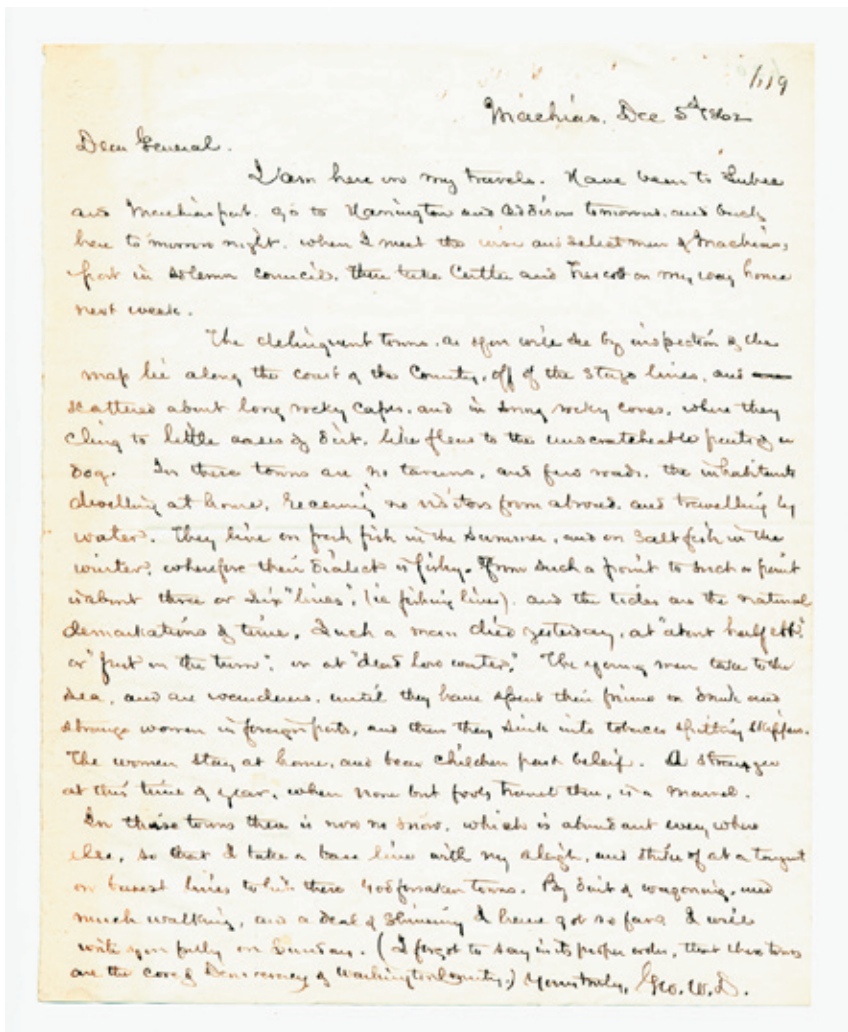 1119
Machias, Dec 5th 1862
Dear General.
I am here in my travels. Have been to Lubec
and Machiasport. Go to Harrington and Addison tomorrow, and back
here to morrow night, when I meet the wise and select men of Machias,
port in solemn council, then take Cutler and Trescott on my way home
next week.
The delinquent towns, as you will see by inspection of the
map lie along the coast of the County, off of the stage lines, and
scattered about long rocky capes, and in snug rocky coves, where they
cling to little oases of dirt, like fleas to the unscratcheable parts of a
dog. In these towns are no taverns, and few roads, the inhabitants
dwelling at home, receiving no visitors from abroad, and travelling by
water. They live on fresh fish in the summer, and on salt fish in the
winter, wherefore their dialect is fishy. From such a point to such a point
is about three or six "lines", (ie fishing lines). and the tides are the natural
demarkations of time. Such a man died yesterday, at "about half ebb",
or "just on the turn", or at "dead low water". The young men take to the
sea, and are wanderers, until they have spent their prime on drink and
strange women in foreign parts, and then they sink into tobacco spitting skippers.
The women stay at home, and bear children past beleif. A stranger
at this time of year, when none but fools travel there, is a marvel.
In these towns there is now no snow, which is abundant every where
else, so that I take a base line with my sleigh, and strike of at a tangent
on buest lines to hit these God forsaken towns. By dint of wagoning, and
much walking, and a deal of shinning I have got so far. I will
write you fully on Sunday. (I forgot to say in its proper order, that these towns
are the core of Democracy of Washington County.) Yours truly, Geo. W. D.